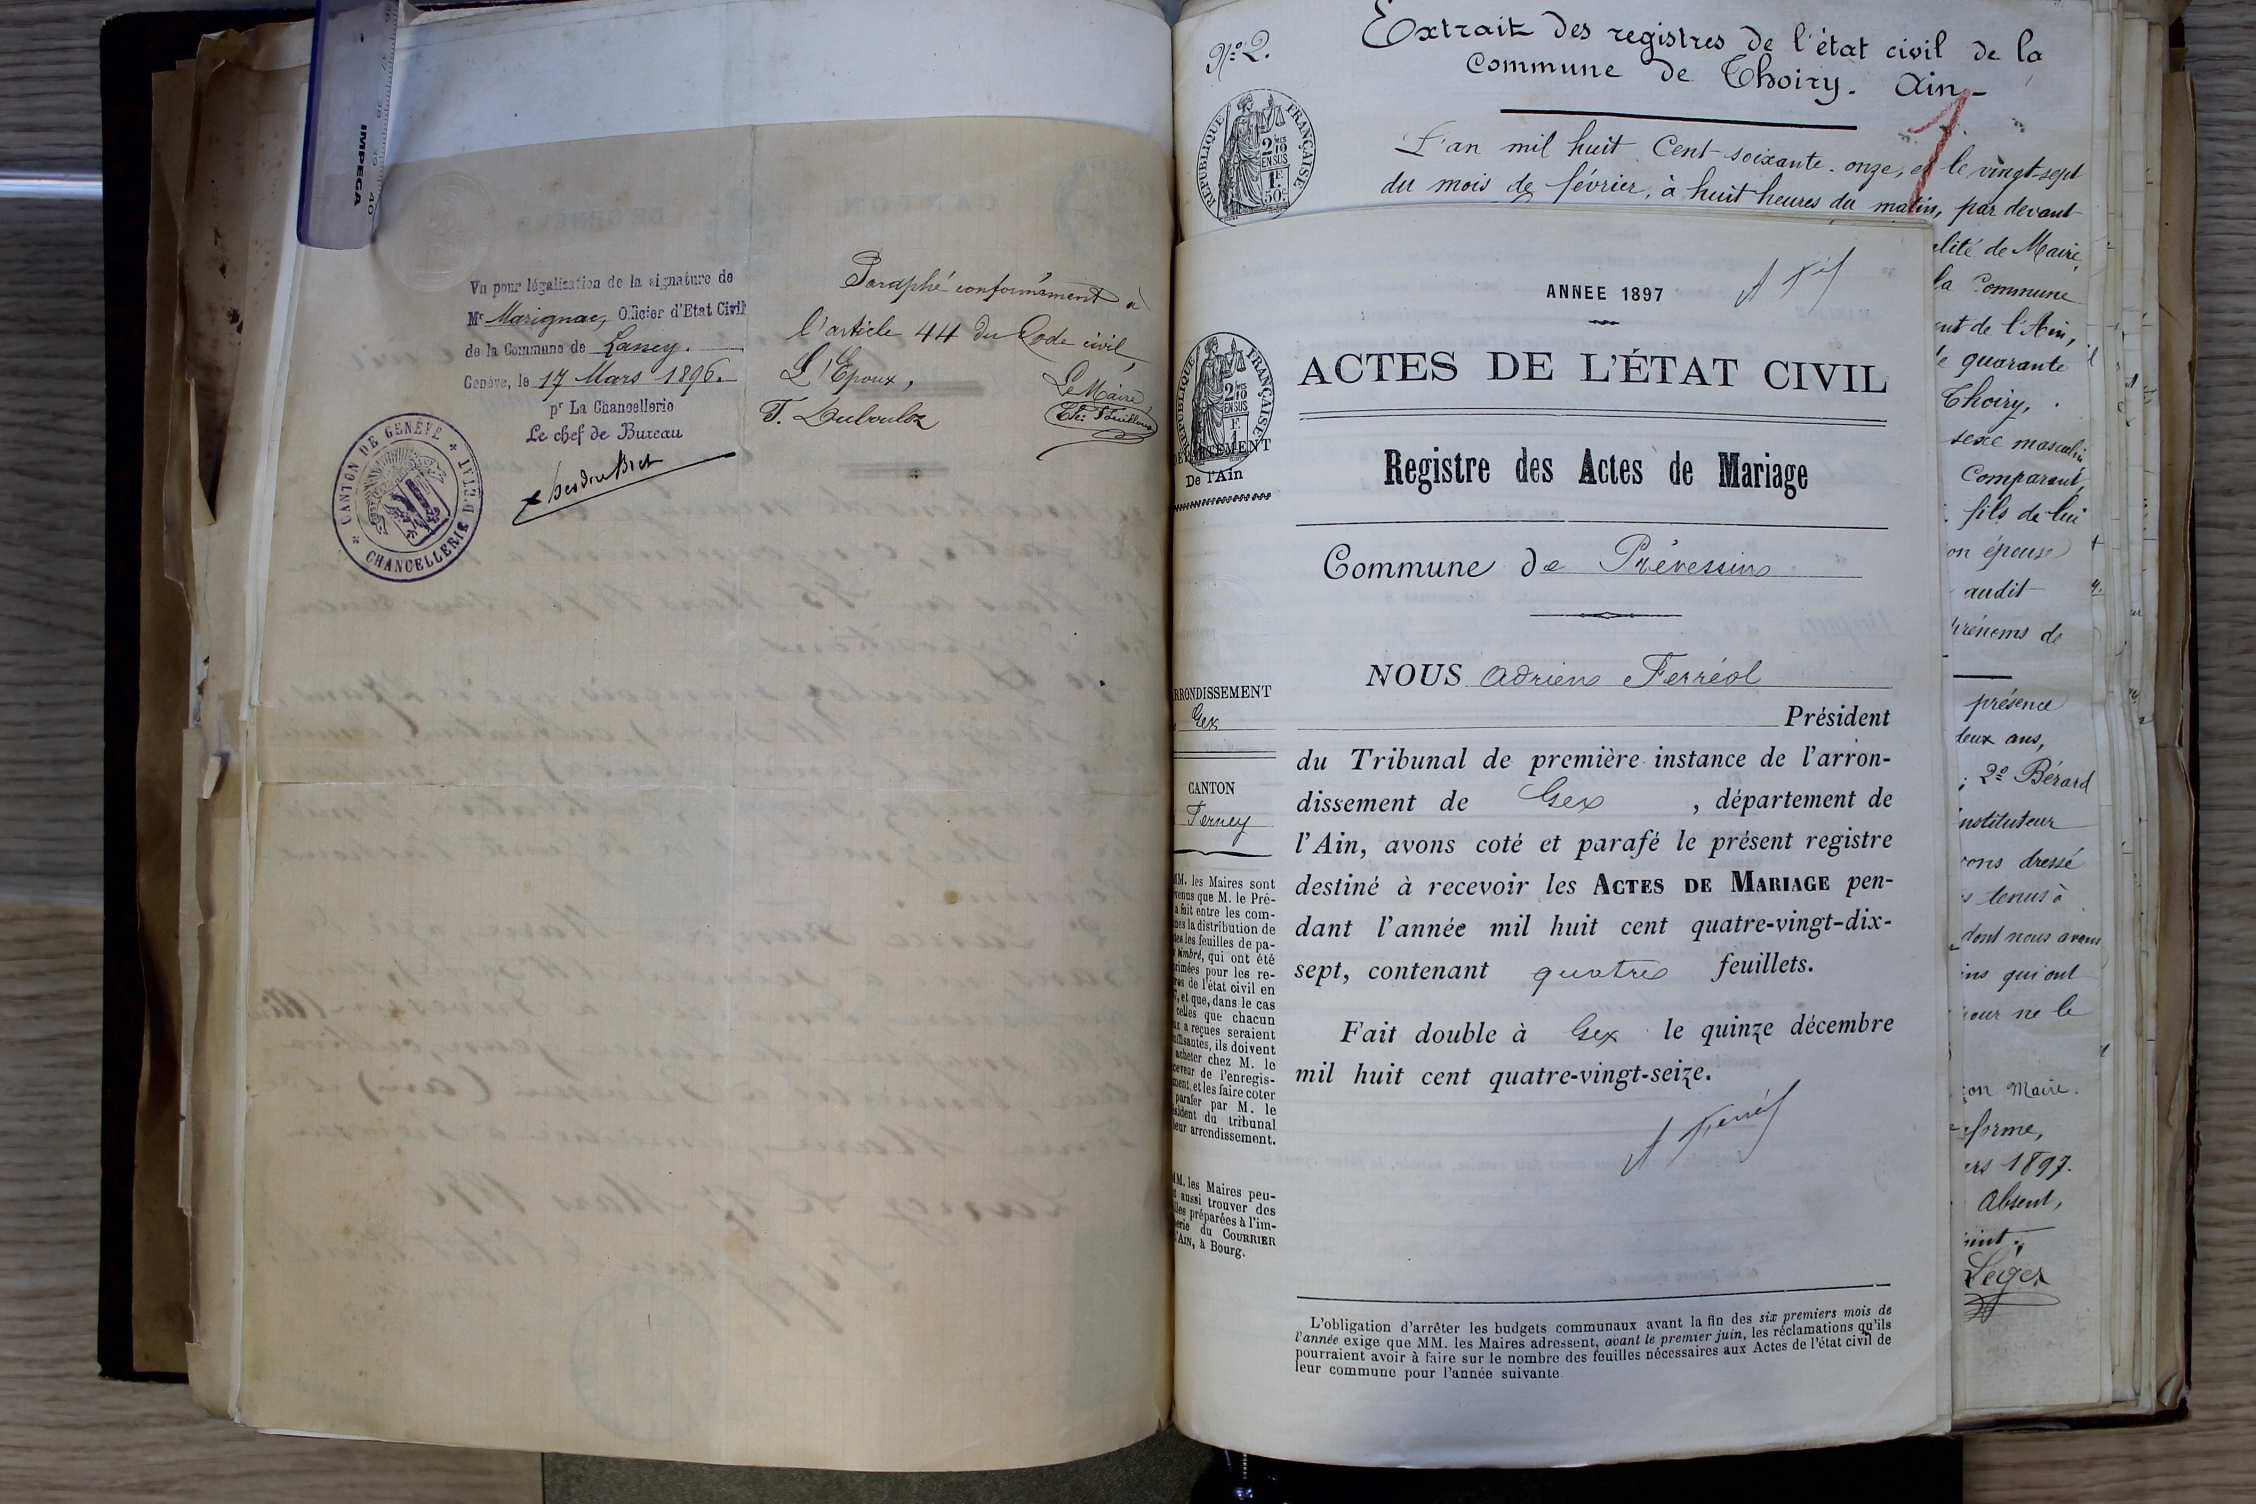 IMPEGA
40
39
Vu pour légalisation de la signature de
Mr Marignac, Officier d'Etat Civil
de la Commune de Lancy.
Genève, le 17 Mars 1896.
pr La Chancellerie
Le chef de Bureau
CANTON DE GENÈVE
CHANCELLERIE D'ETAT
Paraphé conformément à
l'article 44 du Code civil,
L'Epoux,
Le Maire,
F. Dubouloz
No 2.
Extrait des registres de l'état civil de la
Commune de Thoiry. Ain-
RÉPUBLIQUE FRANÇAISE
2 10mes
EN SUS
1F
50c
1
L'an mil huit Cent soixante-onze, et le vingt-sept
du mois de février, à huit heures du matin, par devant
alité de Maire
la Commune
ent de l'Ain,
quarante
Thoiry,
sexe masculin
Comparant,
fils de lui
on épouse
audit
prénoms de
présence
deux ans,
; 2o Bérard
instituteur
vons dressé
tenus à
dont nous avons
ins qui ont
pour ne le
Maire.
forme,
rs 1897.
Absent,
Léger
ANNEE 1897
ACTES DE L'ÉTAT CIVIL
Registre des Actes de Mariage
Commune de Prévessins
NOUS Adrien Ferréol
Président
du Tribunal de première instance de l'arron-
dissement de Gex , département de
l'Ain, avons coté et parafé le présent registre
destiné à recevoir les ACTES DE MARIAGE pen-
dant l'année mil huit cent quatre-vingt-dix-
sept, contenant quatre feuillets.
Fait double à Gex le quinze décembre
mil huit cent quatre-vingt-seize.
RÉPUBLIQUE FRANÇAISE
2 10mes
EN SUS
F.
1
DÉPARTEMENT
De l'Ain
RRONDISSEMENT
Gex
CANTON
Ferney
MM. les Maires sont
venus que M. le Pré-
a fait entre les com-
nes la distribution de
tes les feuilles de pa-
timbré, qui ont été
rimées pour les re-
res de l'état civil en
7, et que, dans le cas
celles que chacun
ux a reçues seraient
uffisantes, ils doivent
acheter chez M. le
ceveur de l'enregis-
ment, et les faire coter
parafer par M. le
sident du tribunal
leur arrondissement.
MM. les Maires peu-
t aussi trouver des
lles préparées à l'im-
erie du COURRIER
l'AIN, à Bourg.
L'obligation d'arrêter les budgets communaux avant la fin des six premiers mois de
l'année exige que MM. les Maires adressent, avant le premier juin, les réclamations qu'ils
pourraient avoir à faire sur le nombre des feuilles nécessaires aux Actes de l'état civil de
leur commune pour l'année suivante.